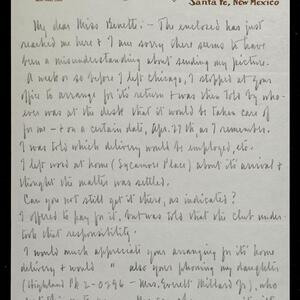 Santa Fe, New Mexico
My dear Miss Benett: - The enclosed has just
reached me here & I am sorry there seems to have
been a misunderstanding about sending my picture.
A week or so before I left Chicago, I stopped at your
office to arrange for its return & was then told by who-
ever was at the desk that it would be taken care of
for me - & on a certain date, Apr. 27th as I remember.
I was told which delivery would be employed, etc.
I left word at home (Sycamore Place) about its arrival &
thought the matter was settled.
Can you not still get it there, as indicated?
I offered to pay for it, but was told that the club under-
took that responsibility.
I would much appreciate your arranging for its home
delivery & would " also your phoning my daughter
(Highland Pk 2-0296 - Mrs. Everett Millard Jr), who